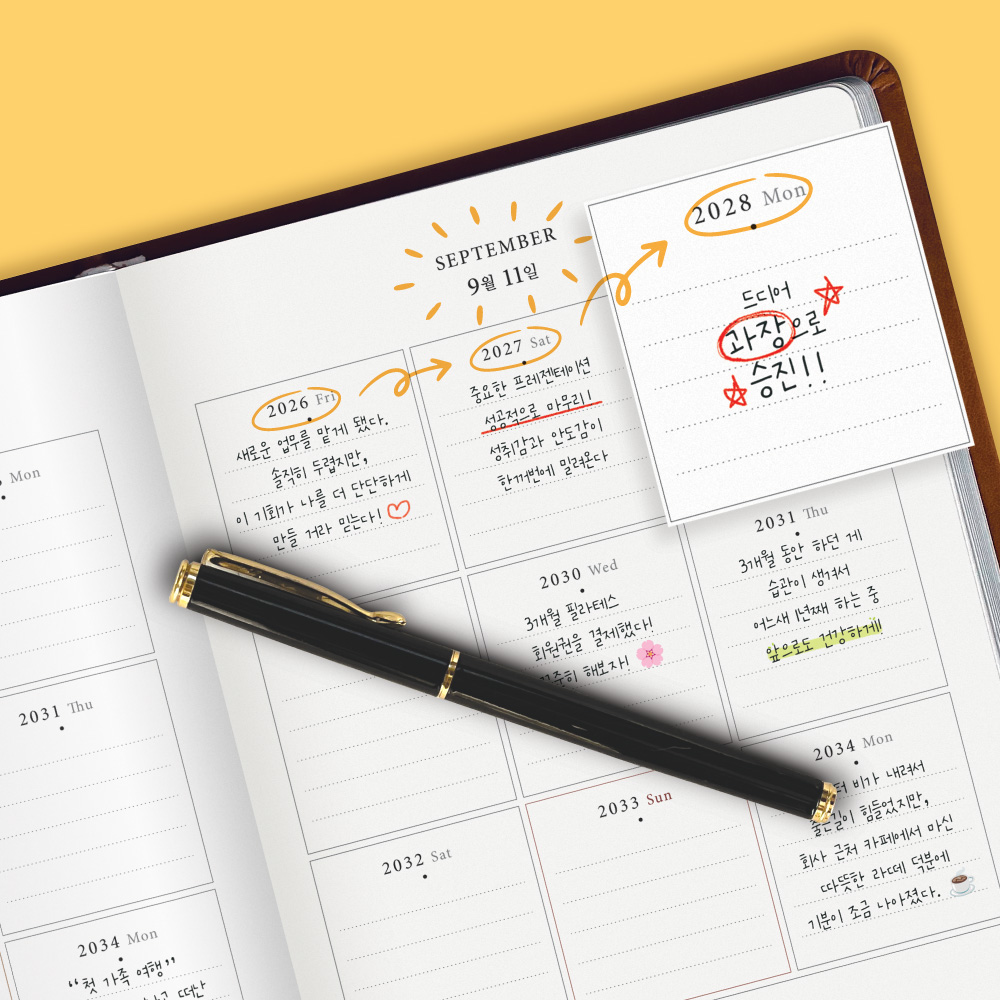 SEPTEMBER
9월 11일
2026 Fri
새로운 업무를 맡게 됐다.
솔직히 두렵지만,
이 기회가 나를 더 단단하게
만들 거라 믿는다!
2027 Sat
중요한 프레젠테이션
성공적으로 마무리!
성취감과 안도감이
한꺼번에 밀려온다
2028 Mon
드디어
과장으로
승진!!
2030 Wed
3개월 필라테스
회원권을 결제했다!
해보자!
2031 Thu
3개월 동안 하던 게
습관이 생겨서
어느새 1년째 하는 중
앞으로도 건강하게!
2032 Sat
2033 Sun
2034 Mon
비가 내려서
힘들었지만,
회사 근처 카페에서 마신
따뜻한 라떼 덕분에
기분이 조금 나아졌다.
Mon
2031 Thu
2034 Mon
“첫 가족 여행”
떠난